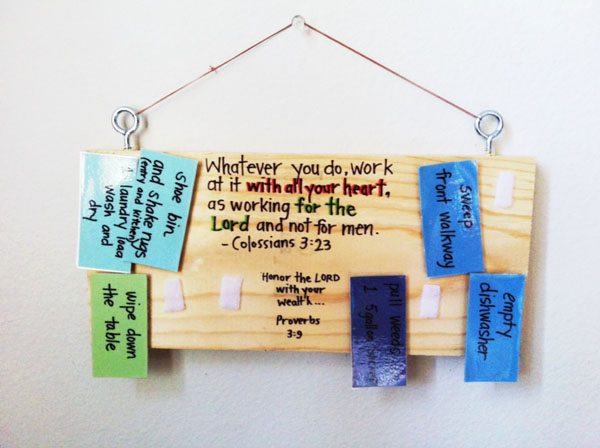 shoe bin
and shake rugs
(entry and kitchen)
laundry load
wash and
dry
Whatever you do, work
at it with all your heart,
as working for the
Lord and not for men.
- Colossians 3:23
sweep
front walkway
wipe down
the table
Honor the LORD
with your
wealth...
Proverbs
3:9
pull weeds
1 5 gallon
empty
dishwasher